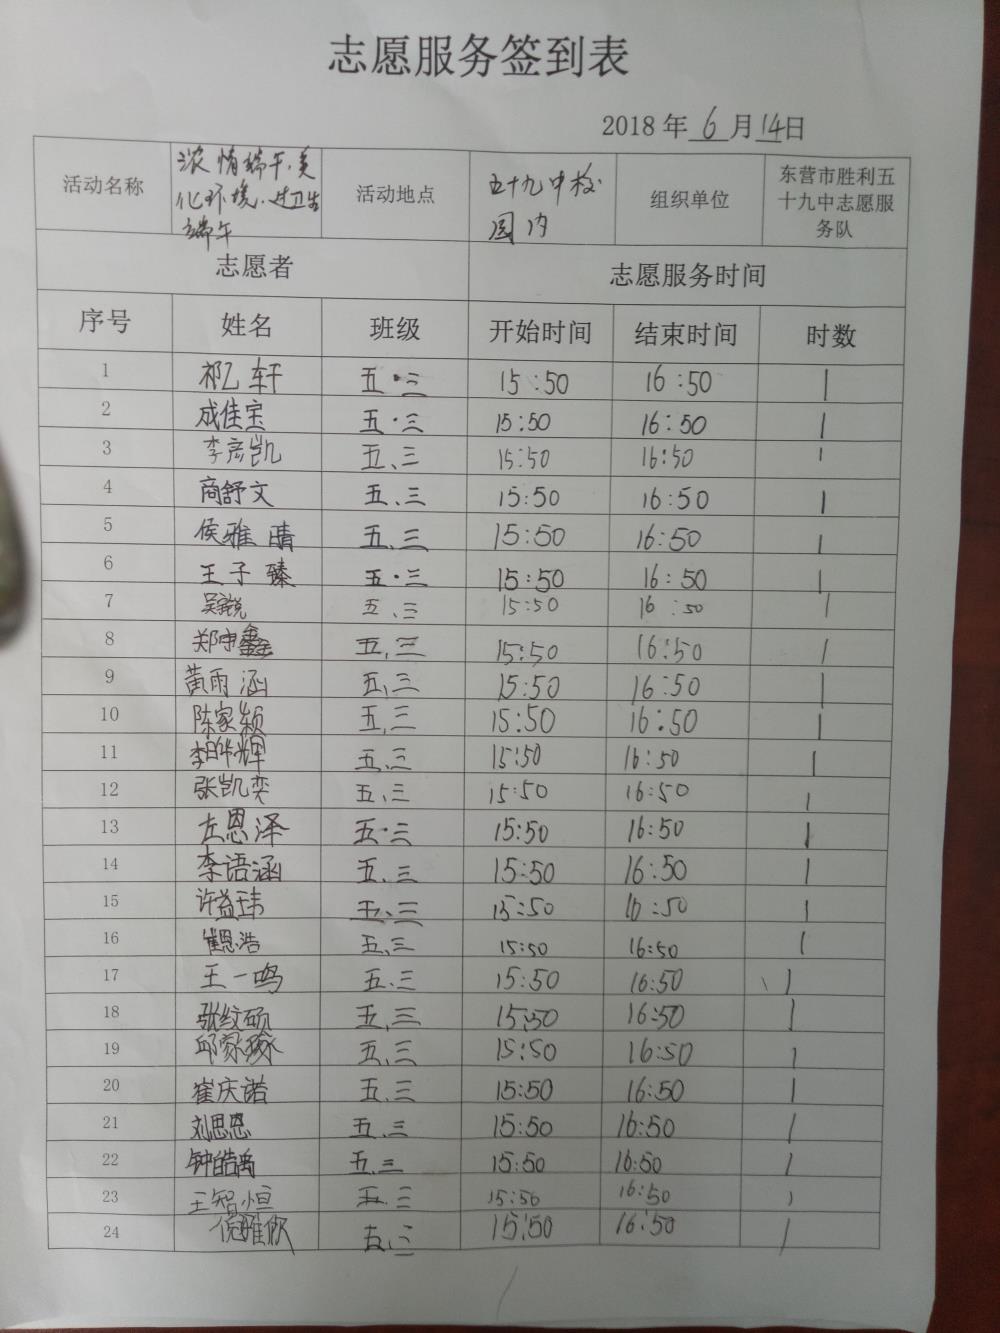 志愿服务签到表
2018 年 6 月 14 日
活动名称 浓情端午.美化环境.过卫生端午 活动地点 五十九中校园内 组织单位 东营市胜利五十九中志愿服务队
志愿者 志愿服务时间
序号 姓名 班级 开始时间 结束时间 时数
1 祁轩 五·三 15:50 16:50 1
2 成佳宝 五·三 15:50 16:50 1
3 李彦凯 五、三 15:50 16:50 1
4 商舒文 五、三 15:50 16:50 1
5 侯雅晴 五、三 15:50 16:50 1
6 王子臻 五·三 15:50 16:50 1
7 五、三 15:50 16:50 1
8 五、三 15:50 16:50 1
9 黄雨涵 五、三 15:50 16:50 1
10 陈家颖 五、三 15:50 16:50 1
11 五、三 15:50 16:50 1
12 张凯奕 五、三 15:50 16:50 1
13 左恩泽 五·三 15:50 16:50 1
14 李语涵 五、三 15:50 16:50 1
15 许益玮 五、三 15:50 16:50 1
16 崔恩浩 五、三 15:50 16:50 1
17 王一鸣 五、三 15:50 16:50 1
18 张纹硕 五、三 15:50 16:50 1
19 五、三 15:50 16:50 1
20 崔庆诺 五、三 15:50 16:50 1
21 刘思恩 五、三 15:50 16:50 1
22 钟皓禹 五、三 15:50 16:50 1
23 王智恒 五、三 15:50 16:50 1
24 倪雅欣 五、三 15:50 16:50 1